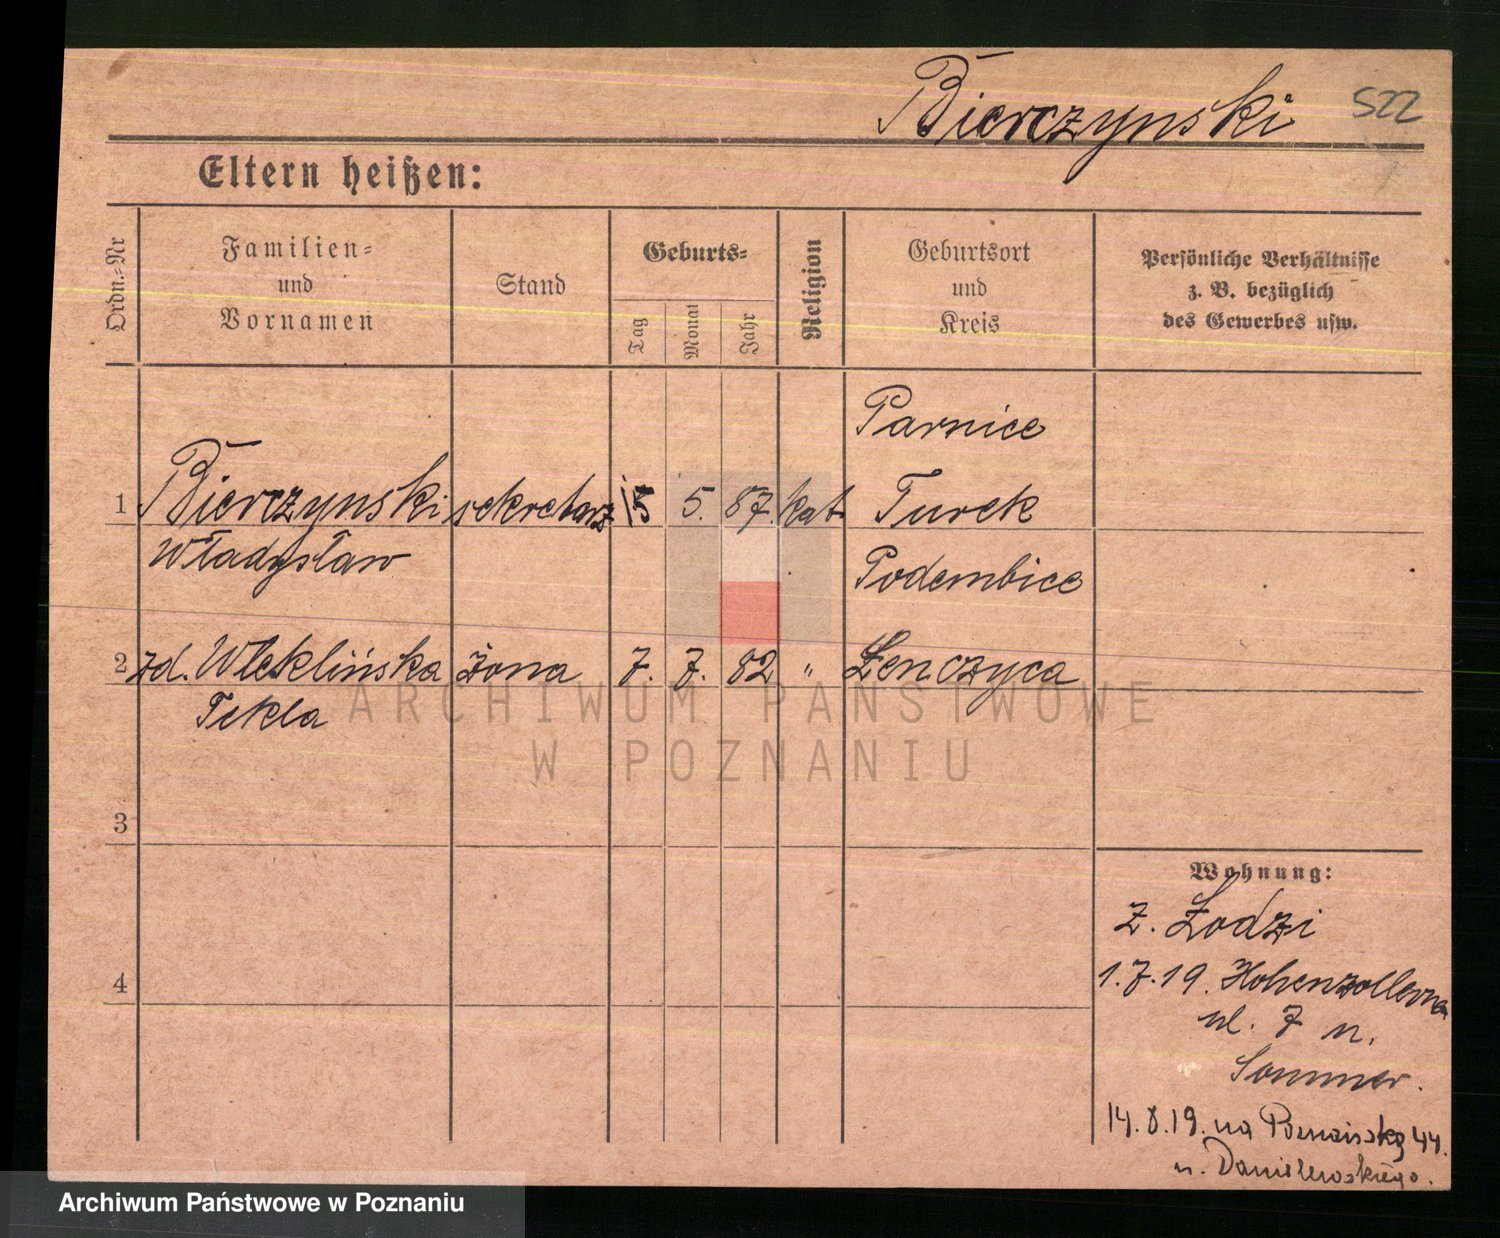 Bierczynski 522
Eltern heißen:
Ordn.-Nr
Familien-
und
Vornamen
Stand
Geburts-
Tag
Monat
Jahr
Religion
Geburtsort
und
Kreis
Persönliche Verhältnisse
z. B. bezüglich
des Gewerbes usw.
Parnice
1 Bierczynski sekretarz 15 5. 87. kat. Turek
Władysław
Podembice
2 zd. Wleklińska żona 7. 7. 82 " Łenczyca
Tekla
ARCHIWUM PAŃSTWOWE
W POZNANIU
3
Wohnung:
z. Łodzi
4
1.7.19. Hohenzollerna
ul. 7 n.
Sommer.
14.8.19. na Poznańską 44.
n. Danielewskiego.
Archiwum Państwowe w Poznaniu